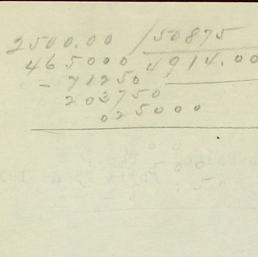 2500.00 /50875
465000 4914.00
- 71250
203750
025000